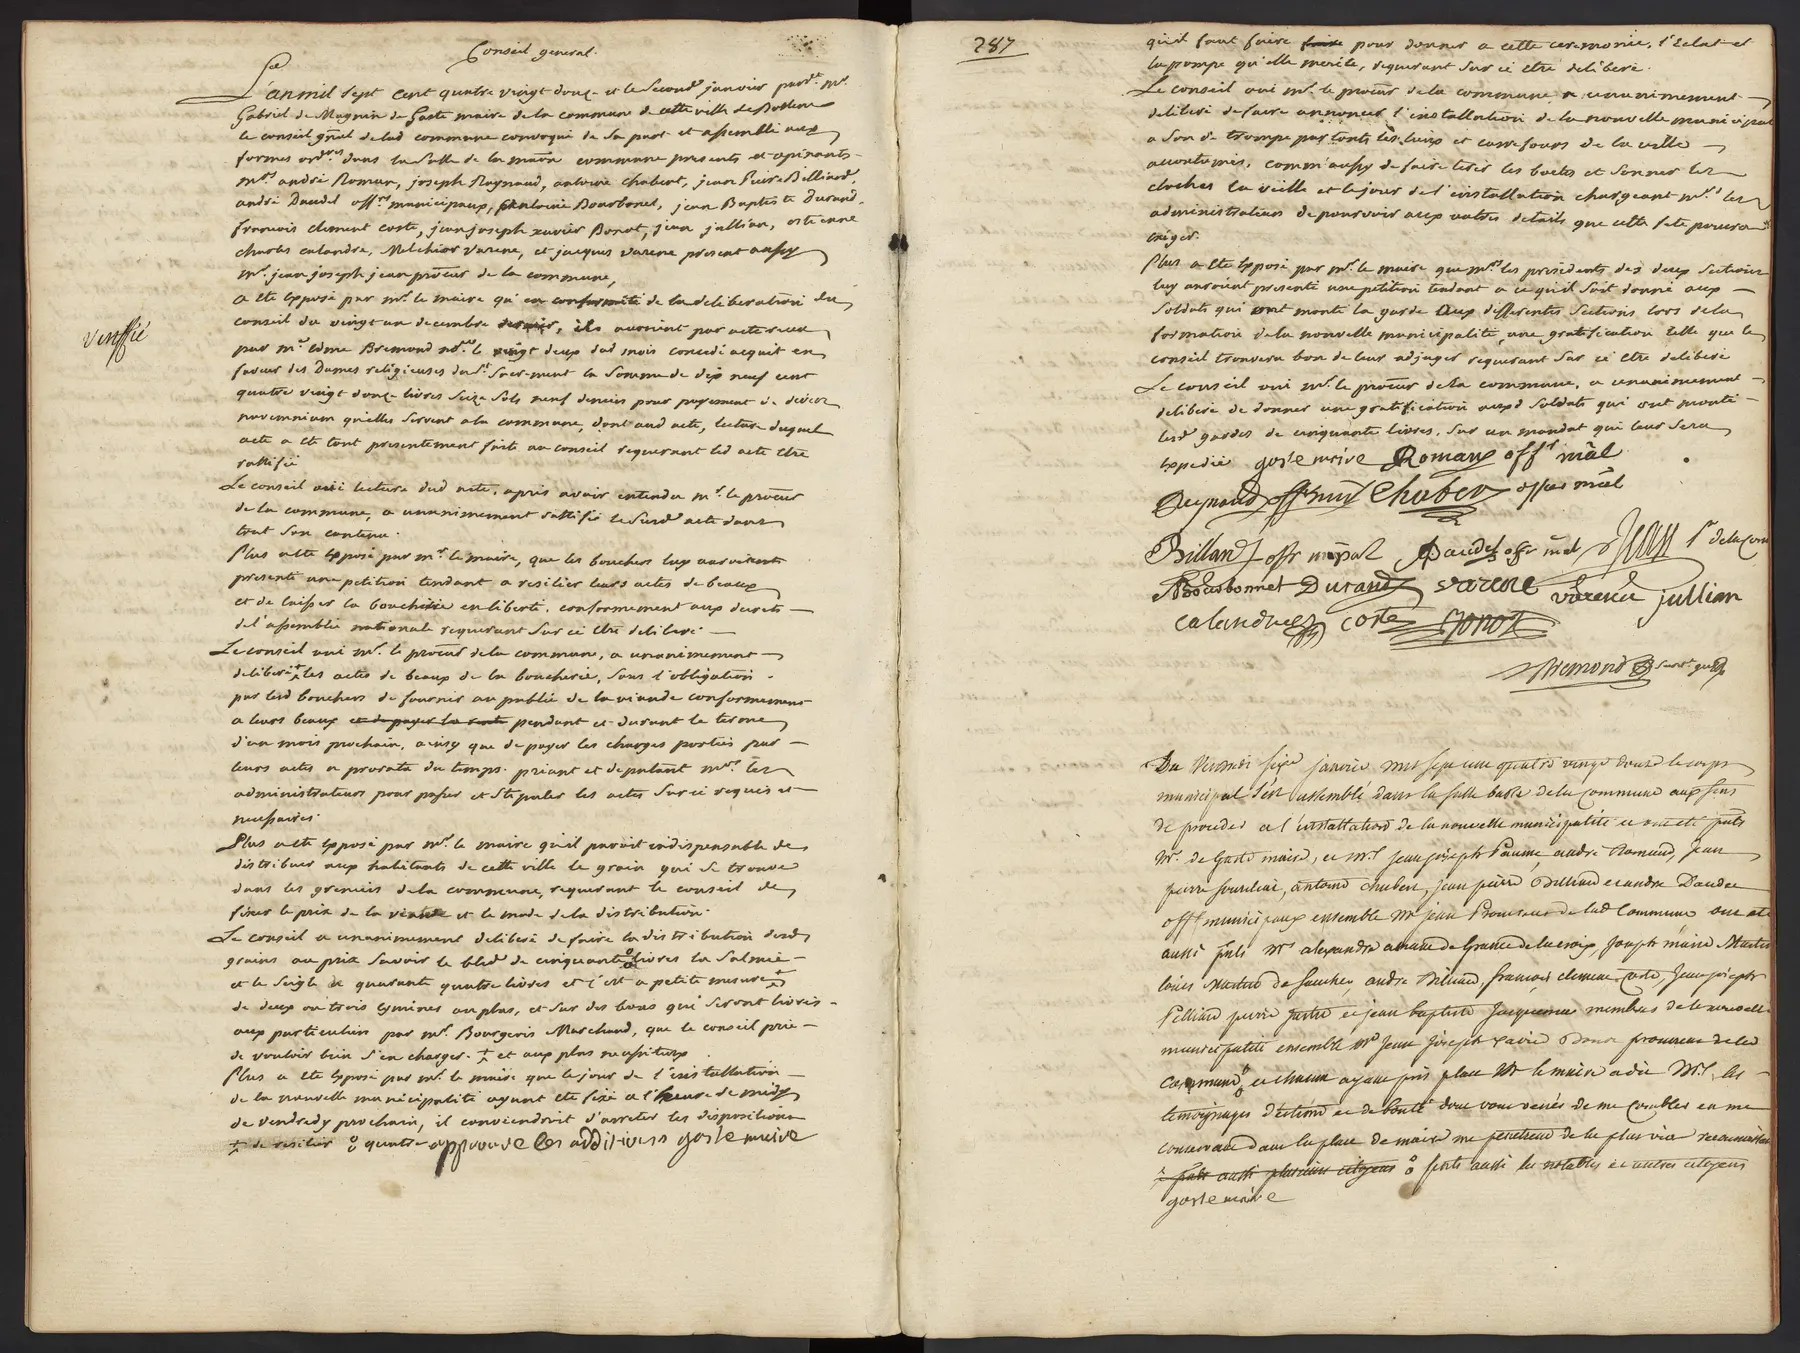 Conseil general.
L'an mil sept cent quatre vingt douze et le second janvier pardt mr
Gabriel de Magnin de Gaste maire de la commune de cette ville de Bollene
le conseil gñal de lad commune convoqué de sa part et assemblé aux
formes ordres dans la salle de la maõn commune presents et opinants
mrs andré Roman, joseph Raynaud, antoine Chabert, jean Pierre Billiard,
andré Daudel offrs municipaux, Antoine Bourbonet, jean Baptiste Durand,
francois clement coste, jean joseph xavier Bonot, jean jullian,
charles calandre, Melchior Varene, et jacques varene present aussy
mr. jean joseph jean procur de la commune,
a eté exposé par mr. le maire qu'en conformité de la deliberation du
conseil du vingt un decembre dernier, ils auroient par acte receu
par me edme Bremond nore le vingt deux dud mois concedé acquit en
verifié
faveur des Dames religieuses du St Sacrement la somme de dix neuf cent
quatre vingt douze livres seize sols neuf deniers pour payement de
qu'elles servent a la commune, dont aud acte, lecture duquel
acte a eté tout presentement faite au conseil requerant led acte etre
rattifié
Le conseil oui lecture dud acte, apres avoir entendu mr. le procur
de la commune, a unanimement rattifié le susd acte dans
tout son contenu.
Plus a eté exposé par mr. le maire, que les bouchers luy auroient
presenté une petition tendant a resilier leurs actes de beaux
et de laisser la boucherie en liberté, conformement aux decrets
de l'assemblée nationale requerant sur ce etre deliberé.
Le conseil oui mr. le procur de la commune, a unanimement
deliberé + les actes de beaux de la boucherie, sous l'obligation
par lesd bouchers de fournir au public de la viande conformement
a leurs beaux et de payer la rente pendant et durant le terme
d'un mois prochain, ainsy que de payer les charges portées par
leurs actes a prorata du temps. priant et deputant mrs. les
administrateurs pour passer et stipuler les actes sur ce requis et
necessaires.
Plus a eté exposé par mr. le maire qu'il paroit indispensable de
distribuer aux habitants de cette ville le grain qui se trouve
dans les greniers de la commune, requerant le conseil de
fixer le prix de la vente et le mode de la distribution.
Le conseil a unanimement deliberé de faire la distribution desd
grains au prix savoir le bled de cinquante livres la salmée
et le seigle de quarante quatre livres et c'est a petite mesure +
de deux ou trois eymines au plus, et sur des bons qui seront livrés
aux particuliers par mr. Bourgeois Marchand, que le conseil prie
de vouloir bien s'en charger. + et aux plus necessiteux
Plus a eté exposé par mr. le maire que le jour de l'installation
de la nouvelle municipalité ayant eté fixé a l'heure de midy
de vendredy prochain, il conviendroit d'arreter les dispositions
+ de resilier quatre approuve les additions gaste maire
287
qu'il faut faire faire pour donner a cette ceremonie, l'eclat et
la pompe qu'elle merite, requerant sur ce etre deliberé.
Le conseil oui mr. le procur de la commune a unanimement
deliberé de faire annoncer l'installation de la nouvelle municipal
a son de trompe par touts les lieux et carrefours de la ville
accoutumés, comm'aussy de faire tirer les boetes et sonner les
cloches la veille et le jour de l'installation chargeant mrs les
administrateurs de pourvoir aux autres details que cette fete pourra
exiger.
Plus a eté exposé par mr. le maire que mrs les presidents des deux sections
luy auroient presenté une petition tendant a ce qu'il soit donné aux
soldats qui ont monté la garde aux differentes sections lors de la
formation de la nouvelle municipalité, une gratification telle que le
conseil trouvera bon de leur adjuger requerant sur ce etre deliberé
Le conseil oui mr. le procur de la commune, a unanimement
deliberé de donner une gratification auxd soldats qui ont monté
lesd gardes de cinquante livres, sur un mandat qui leur sera
expedié gaste maire Roman offr mãl
Raynaud off mũn Chabert offier mãl
Billard offr mpal Daudel offr mãl Jean pr de la com
A Bourbonnet Durand varene varene jullian
calandre coste Bonot
Bremond secretre
Du vendredi sixe janvier mil sept cent quatre vingt douze le corps
municipal s'est assemblé dans la salle basse de la commune aux fins
de proceder a l'installation de la nouvelle municipalité et ont eté pnts
Mr. de Gaste maire, et Mrs jean joseph Paume, andré Romand, jean
pierre, antoine chabert, jean pierre Billiard et andré Daudel
offs municipaux ensemble Mr jean Procureur de lad Commune ont eté
aussi pnts Mrs alexandre de Grance de lacroix, joseph marie Martin
louis Martin de, andré Biliard, francois clement Coste, jean joseph
Pelliard pierre et jean baptiste Jacquemus membres de la nouvelle
municipalité ensemble Mr jean joseph xavier Bonot procureur de lad
Commune et chacun ayant pris place Mr le maire a dit Mrs. les
temoignages d'estime et de bonté dont vous venés de me combler en me
conservant dans la place de maire me penetrent de la plus vive reconnaissan
+ pnts aussi plusieurs citoyens pnts aussi les notables et autres citoyens
gaste maire